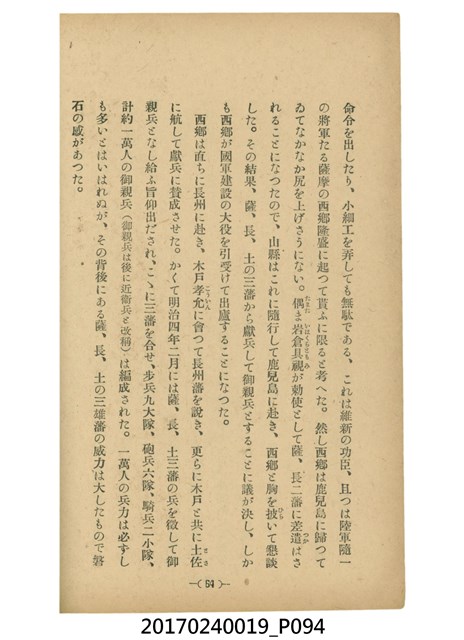 命令を出したり、小細工を弄しても無駄である、これは維新の功臣、且つは陸軍隨一
の將軍たる薩摩の西郷隆盛に起つて貰ふに限ると考へた。然し西郷は鹿兒島に歸つて
ゐてなかなか尻を上げさうにない。偶ま岩倉具視が勅使として薩、長二藩に差遣はさ
れることになつたので、山縣はこれに隨行して鹿兒島に赴き、西郷と胸を披いて懇談
した。その結果、薩、長、土の三藩から獻兵して御親兵とすることに議が決し、しか
も西郷が國軍建設の大役を引受けて出廬することになつた。
西郷は直ちに長州に赴き、木戸孝允に會つて長州藩を説き、更らに木戸と共に土佐
に航して獻兵に賛成させた。かくて明治四年二月には薩、長、土三藩の兵を徴して御
親兵となし給ふ旨仰出だされ、こゝに三藩を合せ、步兵九大隊、砲兵六隊、騎兵二小隊、
計約一萬人の御親兵(御親兵は後に近衛兵と改稱)は編成された。一萬人の兵力は必ずし
も多いとはいはれぬが、その背後にある薩、長、土の三雄藩の威力は大したもので磐
石の感があつた。
—( 64 )—
20170240019_P094